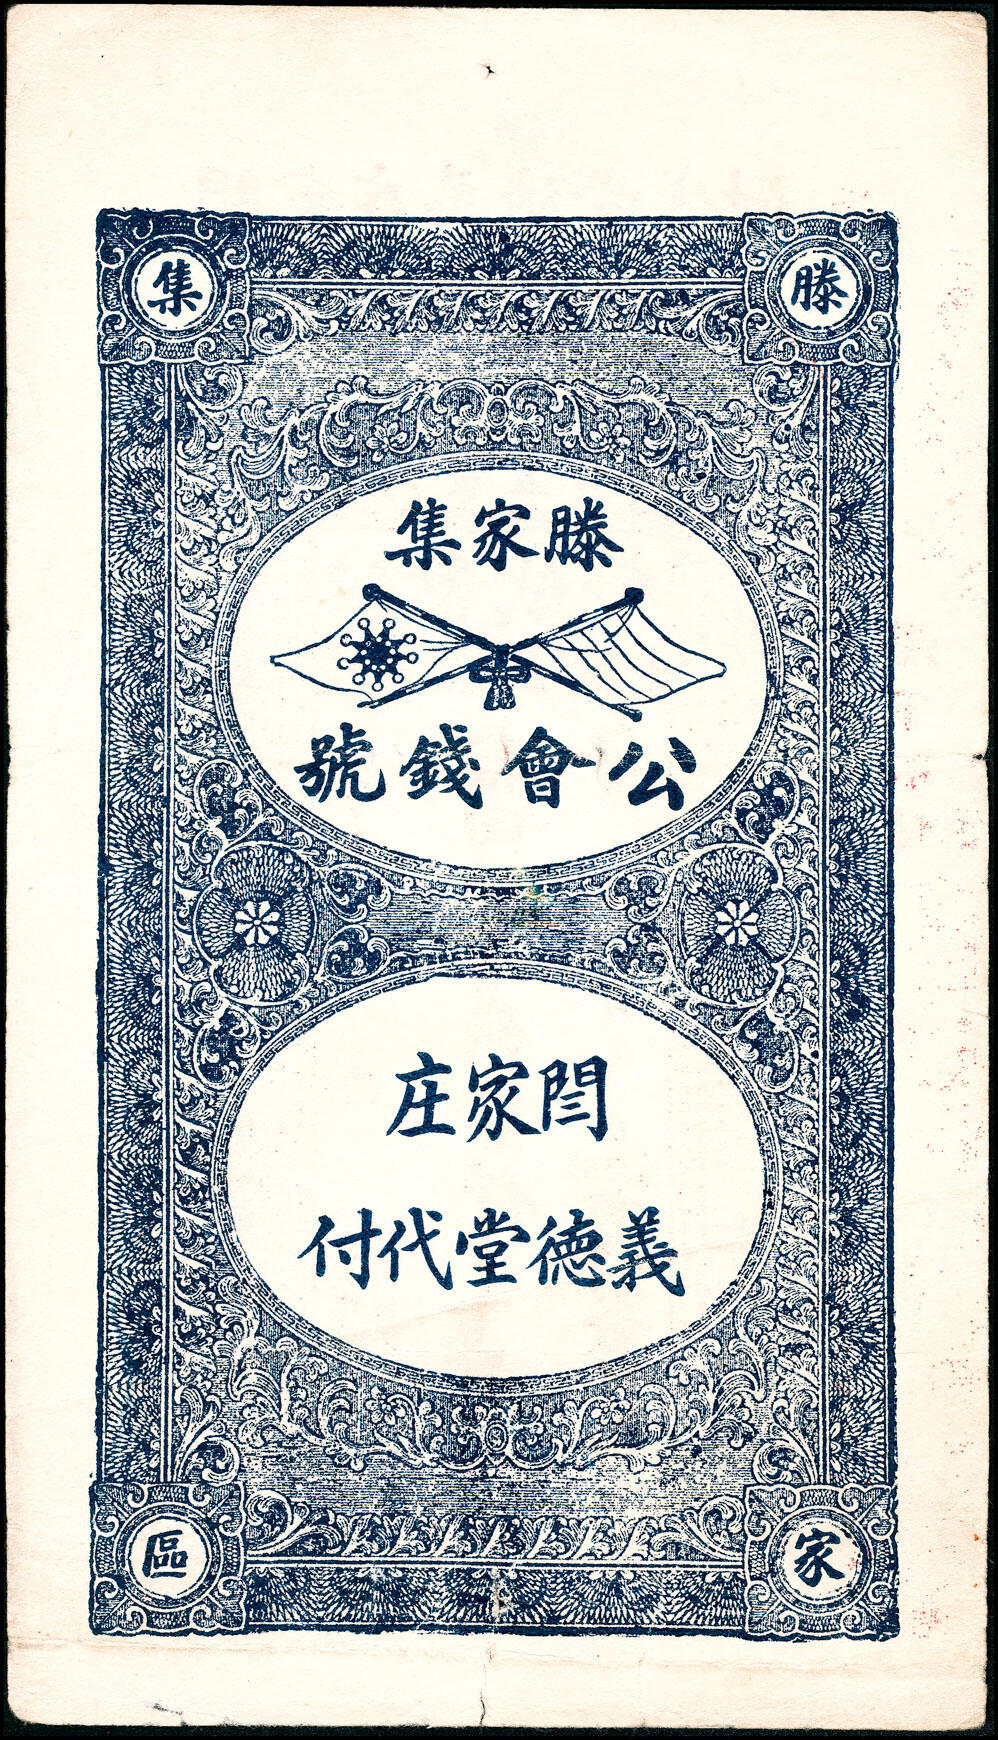 滕
集
滕家集
公會錢號
閆家庄
義德堂代付
家
區